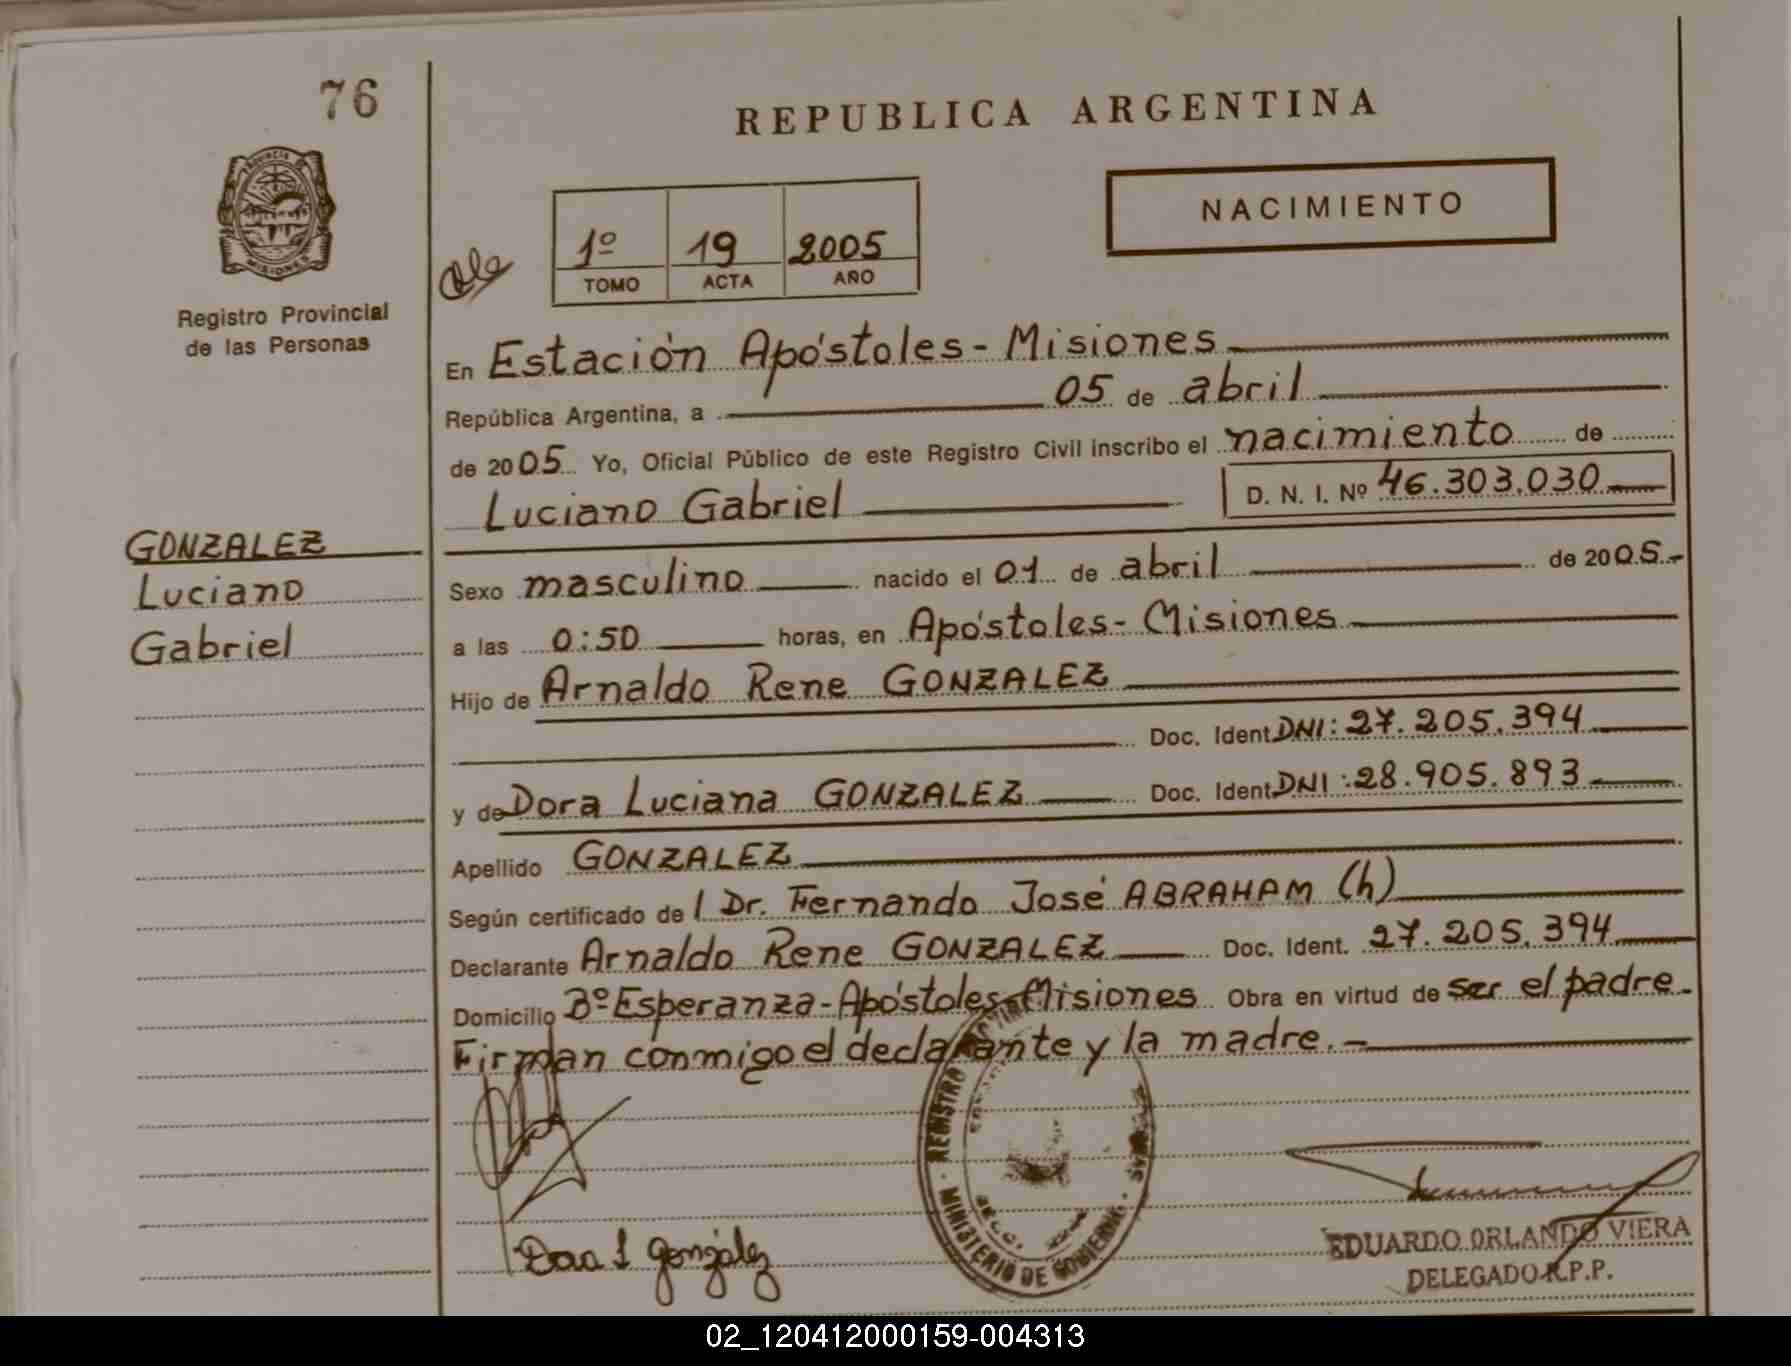 76
REPUBLICA ARGENTINA
NACIMIENTO
1º 19 2005
TOMO ACTA AÑO
PROVINCIA DE
MISIONES
Registro Provincial
de las Personas
En Estación Apóstoles - Misiones
República Argentina, a 05 de abril
de 2005 Yo, Oficial Público de este Registro Civil inscribo el nacimiento de
Luciano Gabriel D. N. I. Nº 46.303.030
GONZALEZ
Luciano
Gabriel
Sexo masculino nacido el 01 de abril de 2005.-
a las 0:50 horas, en Apóstoles - Misiones
Hijo de Arnaldo Rene GONZALEZ
Doc. Ident. DNI: 27.205.394
y de Dora Luciana GONZALEZ Doc. Ident. DNI: 28.905.893
Apellido GONZALEZ
Según certificado de l Dr. Fernando José ABRAHAM (h)
Declarante Arnaldo Rene GONZALEZ Doc. Ident. 27.205.394
Domicilio Bº Esperanza - Apóstoles - Misiones Obra en virtud de ser el padre.
Firman conmigo el declarante y la madre.-
REGISTRO
MINISTERIO DE GOBIERNO
Dora L González
EDUARDO ORLANDO VIERA
DELEGADO R.P.P.
02_120412000159-004313